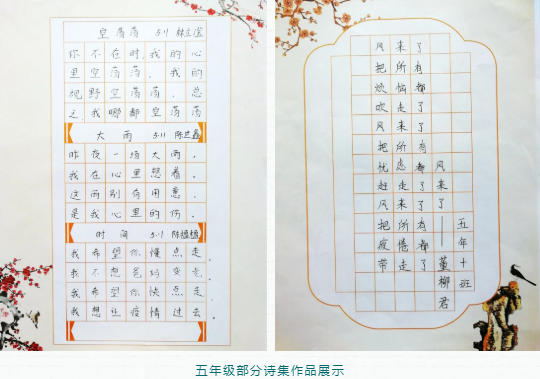 空荡荡 5.11
你不在时，我的心
里空荡荡，我的
视野空荡荡，总
之我哪都空荡荡
大雨 5.11
昨夜一场大雨，
我在心里想着，
这雨别有用意，
是我心里的伤。
时间 5.11
我希望你慢点走
我不想爸妈变老
我希望你快点走
我想让疫情过去
风来了
把所有
烦恼都
吹走了
风来了
把所有
忧愁都
赶走了
风来了
把所有
疲倦都
带走了
风来了
——五年十班
董柳君
五年级部分诗集作品展示